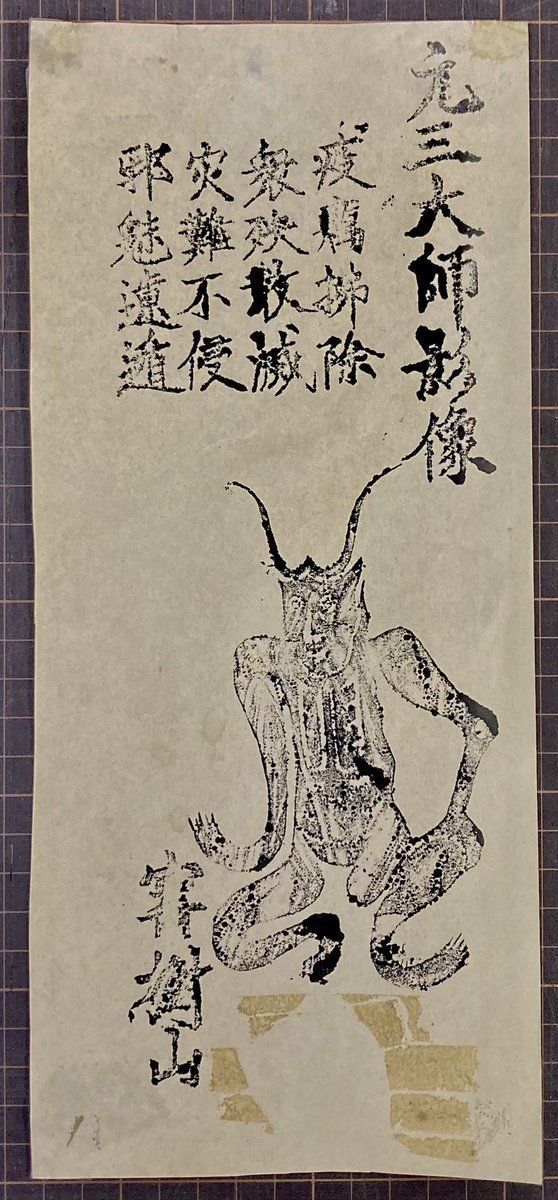 元三大師影像
疫除
衆殃散滅
灾難不侵
邪魅遠遁
樹山